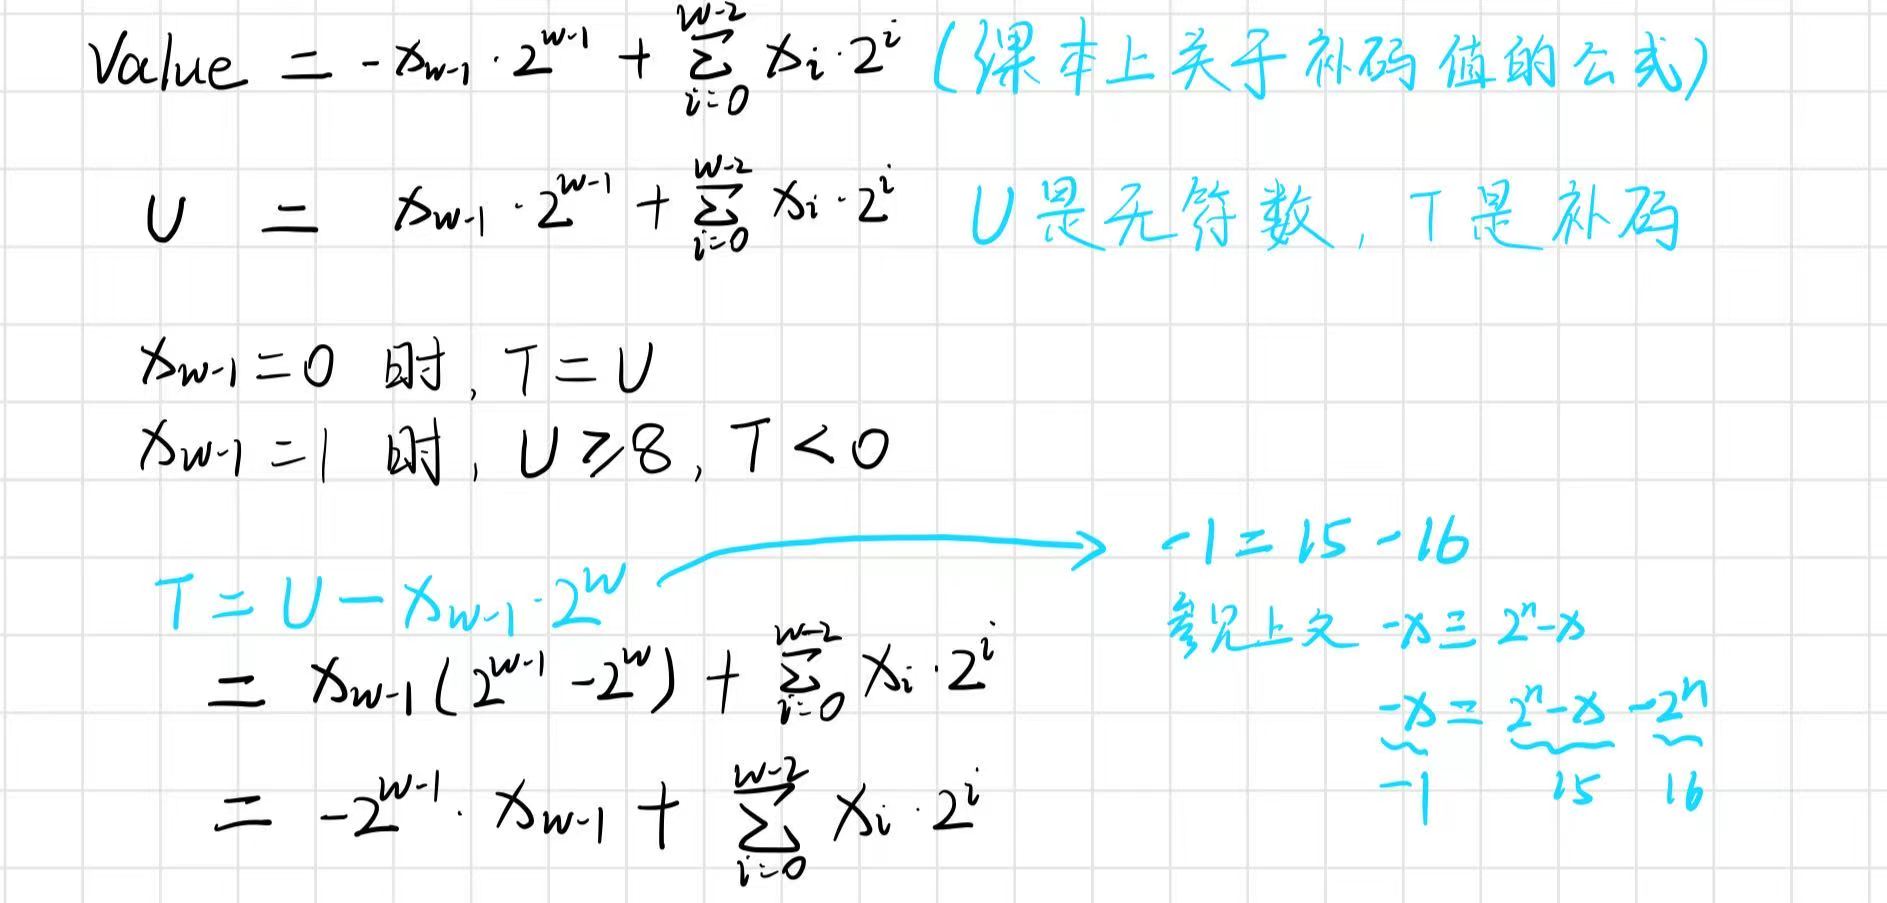 Value = -x_{w-1}·2^{w-1} + \sum_{i=0}^{w-2} x_i·2^i (课本上关于补码值的公式)
U = x_{w-1}·2^{w-1} + \sum_{i=0}^{w-2} x_i·2^i U是无符数, T是补码
x_{w-1}=0 时, T=U
x_{w-1}=1 时, U≥8, T<0
T=U-x_{w-1}·2^w → -1=15-16
= x_{w-1}(2^{w-1}-2^w) + \sum_{i=0}^{w-2} x_i·2^i
= -2^{w-1}·x_{w-1} + \sum_{i=0}^{w-2} x_i·2^i
参见上文 -x≡2^n-x
-x=2^n-x-2^n
-1 15 16